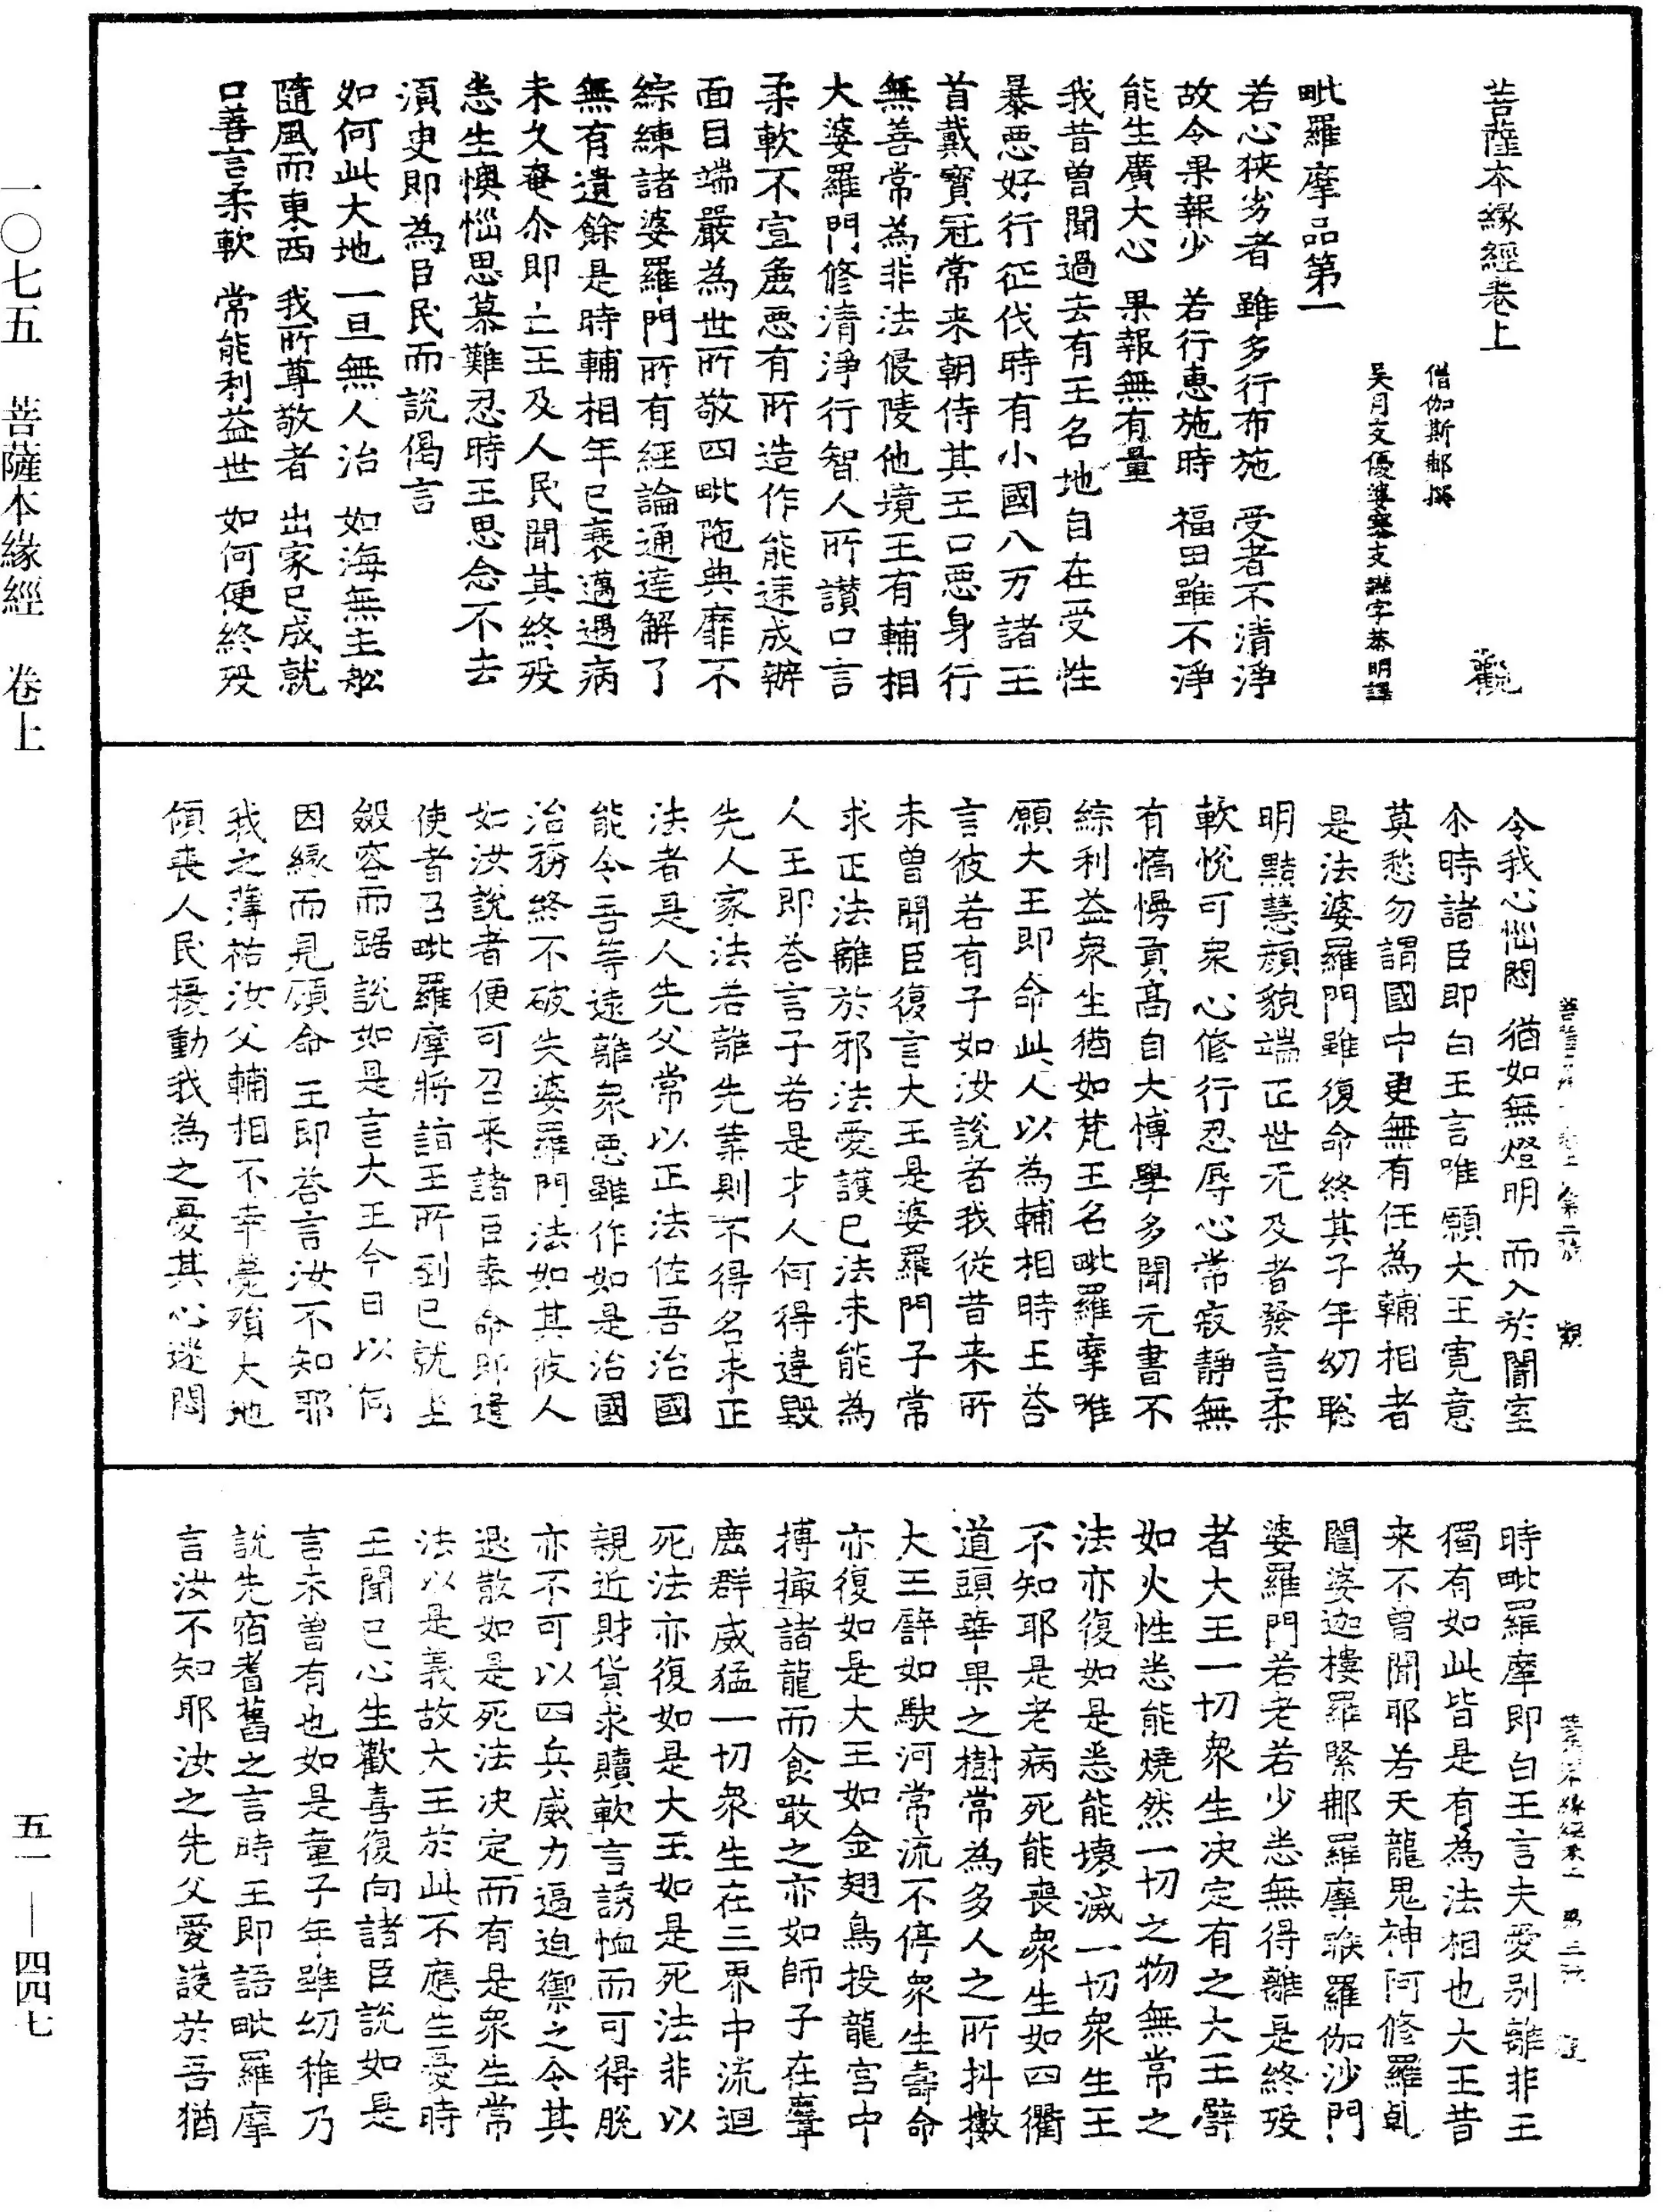 菩薩本緣經卷上 觀
僧伽斯那撰
吳月支優婆塞支謙字恭明譯
毗羅摩品第一
若心狹劣者 雖多行布施 受者不清淨
故令果報少 若行恵施時 福田雖不淨
能生廣大心 果報無有量
我昔曾聞過去有王名地自在受性
暴惡好行征伐時有小國八万諸王
首戴寶冠常来朝侍其王口惡身行
無善常為非法侵陵他境王有輔相
大婆羅門修清淨行智人所讃口言
柔軟不宣麁惡有所造作能速成辦
面目端嚴為世所敬四毗陁典靡不
綜練諸婆羅門所有經論通達解了
無有遺餘是時輔相年已衰邁遇病
未久奄尒即亡王及人民聞其終歿
恙生懊惱思慕難忍時王思念不去
須臾即為臣民而說偈言
如何此大地 一旦無人治 如海無主舩
隨風而東西 我所尊敬者 出家已成就
口善言柔軟 常能利益世 如何便終歿
令我心惱悶 猶如無燈明 而入於闇室
尒時諸臣即白王言唯願大王寬意
莫愁勿謂國中更無有任為輔相者
是法婆羅門雖復命終其子年幼聡
明黠慧顏貌端正世无及者發言柔
軟悅可衆心修行忍辱心常寂靜無
有憍慢貢高自大博學多聞无書不
綜利益衆生猶如梵王名毗羅摩唯
願大王即命此人以為輔相時王荅
言彼若有子如汝說者我從昔来所
未曾聞臣復言大王是婆羅門子常
求正法離於邪法愛護已法未能為
人王即荅言子若是才人何得違毀
先人家法若離先業則不得名求正
法者是人先父常以正法佐吾治國
能令吾等遠離衆惡雖作如是治國
治務終不破失婆羅門法如其彼人
如汝說者便可召来諸臣奉命即遣
使者召毗羅摩將詣王所到已就坐
斂容而踞說如是言大王今日以何
因緣而見顧命 王即荅言汝不知耶
我之薄祐汝父輔相不幸薨殞大地
傾喪人民擾動我為之憂其心迷悶
時毗羅摩即白王言夫愛別離非王
獨有如此皆是有為法相也大王昔
来不曾聞耶若天龍鬼神阿修羅乹
闥婆迦樓羅緊那羅摩睺羅伽沙門
婆羅門若老若少恙無得離是終歿
者大王一切衆生決定有之大王譬
如火性恙能燒然一切之物無常之
法亦復如是恙能壞滅一切衆生王
不知耶是老病死能喪衆生如四衢
道頭華果之樹常為多人之所抖擻
大王譬如駛河常流不停衆生壽命
亦復如是大王如金翅鳥投龍宮中
搏撮諸龍而食噉之亦如師子在麞
鹿群威猛一切衆生在三界中流迴
死法亦復如是大王如是死法非以
親近財貨求贖軟言誘恤而可得脫
亦不可以四兵威力逼迫禦之令其
退散如是死法決定而有是衆生常
法以是義故大王於此不應生憂時
王聞已心生歡喜復向諸臣說如是
言未曾有也如是童子年雖幼稚乃
說先宿耆舊之言時王即語毗羅摩
言汝不知耶汝之先父愛護於吾猶
一〇七五 菩薩本緣經 卷上
五一 — 四四七